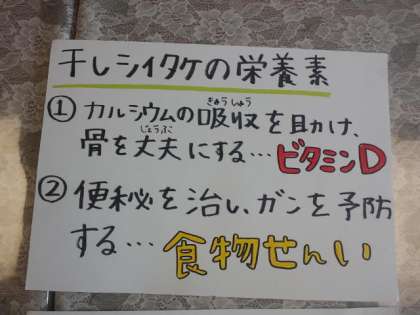 干しシイタケの栄養素
きゅうしゅう
① カルシウムの吸収を助け、
じょうぶ
骨を丈夫にする… ビタミンD
② 便秘を治し、ガンを予防
する… 食物せんい